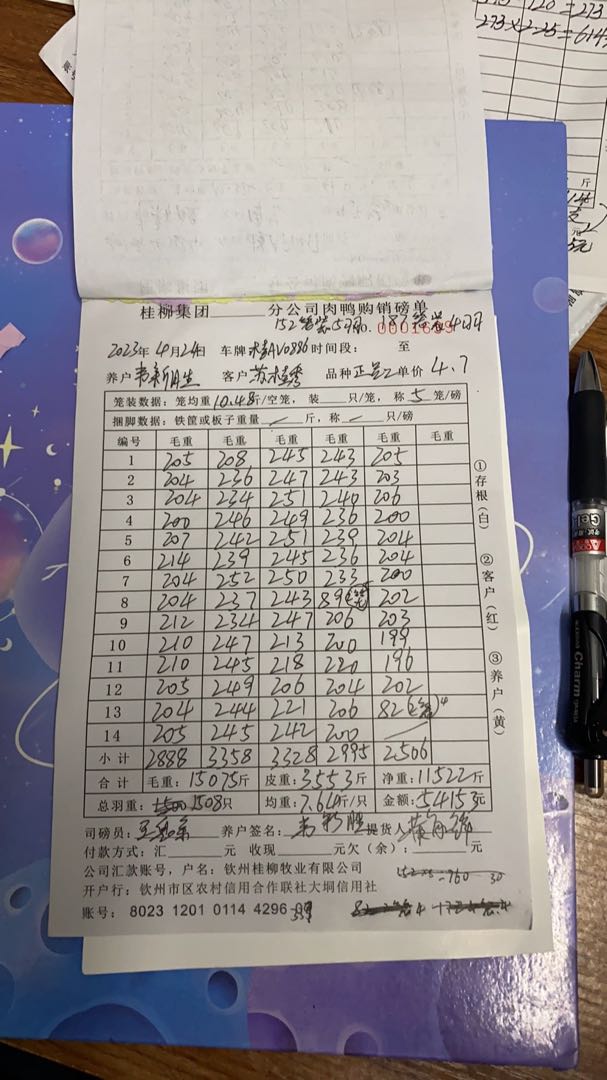 120=273
273×2.25=614
桂柳集团 分公司肉鸭购销磅单
152笼装5羽 187笼装4羽
NO. 0001659
2023年4月24日 车牌 桂AV0886 时间段： 至
养户 客户 苏桂秀 品种 正品2 单价 4.7
笼装数据：笼均重10.48斤/空笼，装 只/笼，称5笼/磅
捆脚数据：铁筐或板子重量 斤，称 只/磅
编号 毛重 毛重 毛重 毛重 毛重 毛重
1 205 208 245 243 205
2 204 236 247 243 203
3 204 234 251 240 206
4 200 246 249 236 200
5 207 242 251 239 204
6 214 239 245 236 204
7 204 252 250 233 200
8 204 237 243 89 202
9 212 234 247 206 203
10 210 247 213 200 199
11 210 245 218 220 196
12 205 249 206 204 202
13 204 244 221 206 82(2笼)4
14 205 245 242 200
小计 2888 3358 3328 2995 2506
合计 毛重：15075斤 皮重：3553斤 净重：11522斤
总羽重：1508只 均重：7.64斤/只 金额：54153元
司磅员： 养户签名： 提货人：
付款方式：汇 元 收现 元欠（余）： 元
公司汇款账号，户名：钦州桂柳牧业有限公司
开户行：钦州市区农村信用合作联社大垌信用社
账号： 8023 1201 0114 4296
152×5=760 30
①存根（白）
②客户（红）
③养户（黄）
Charm